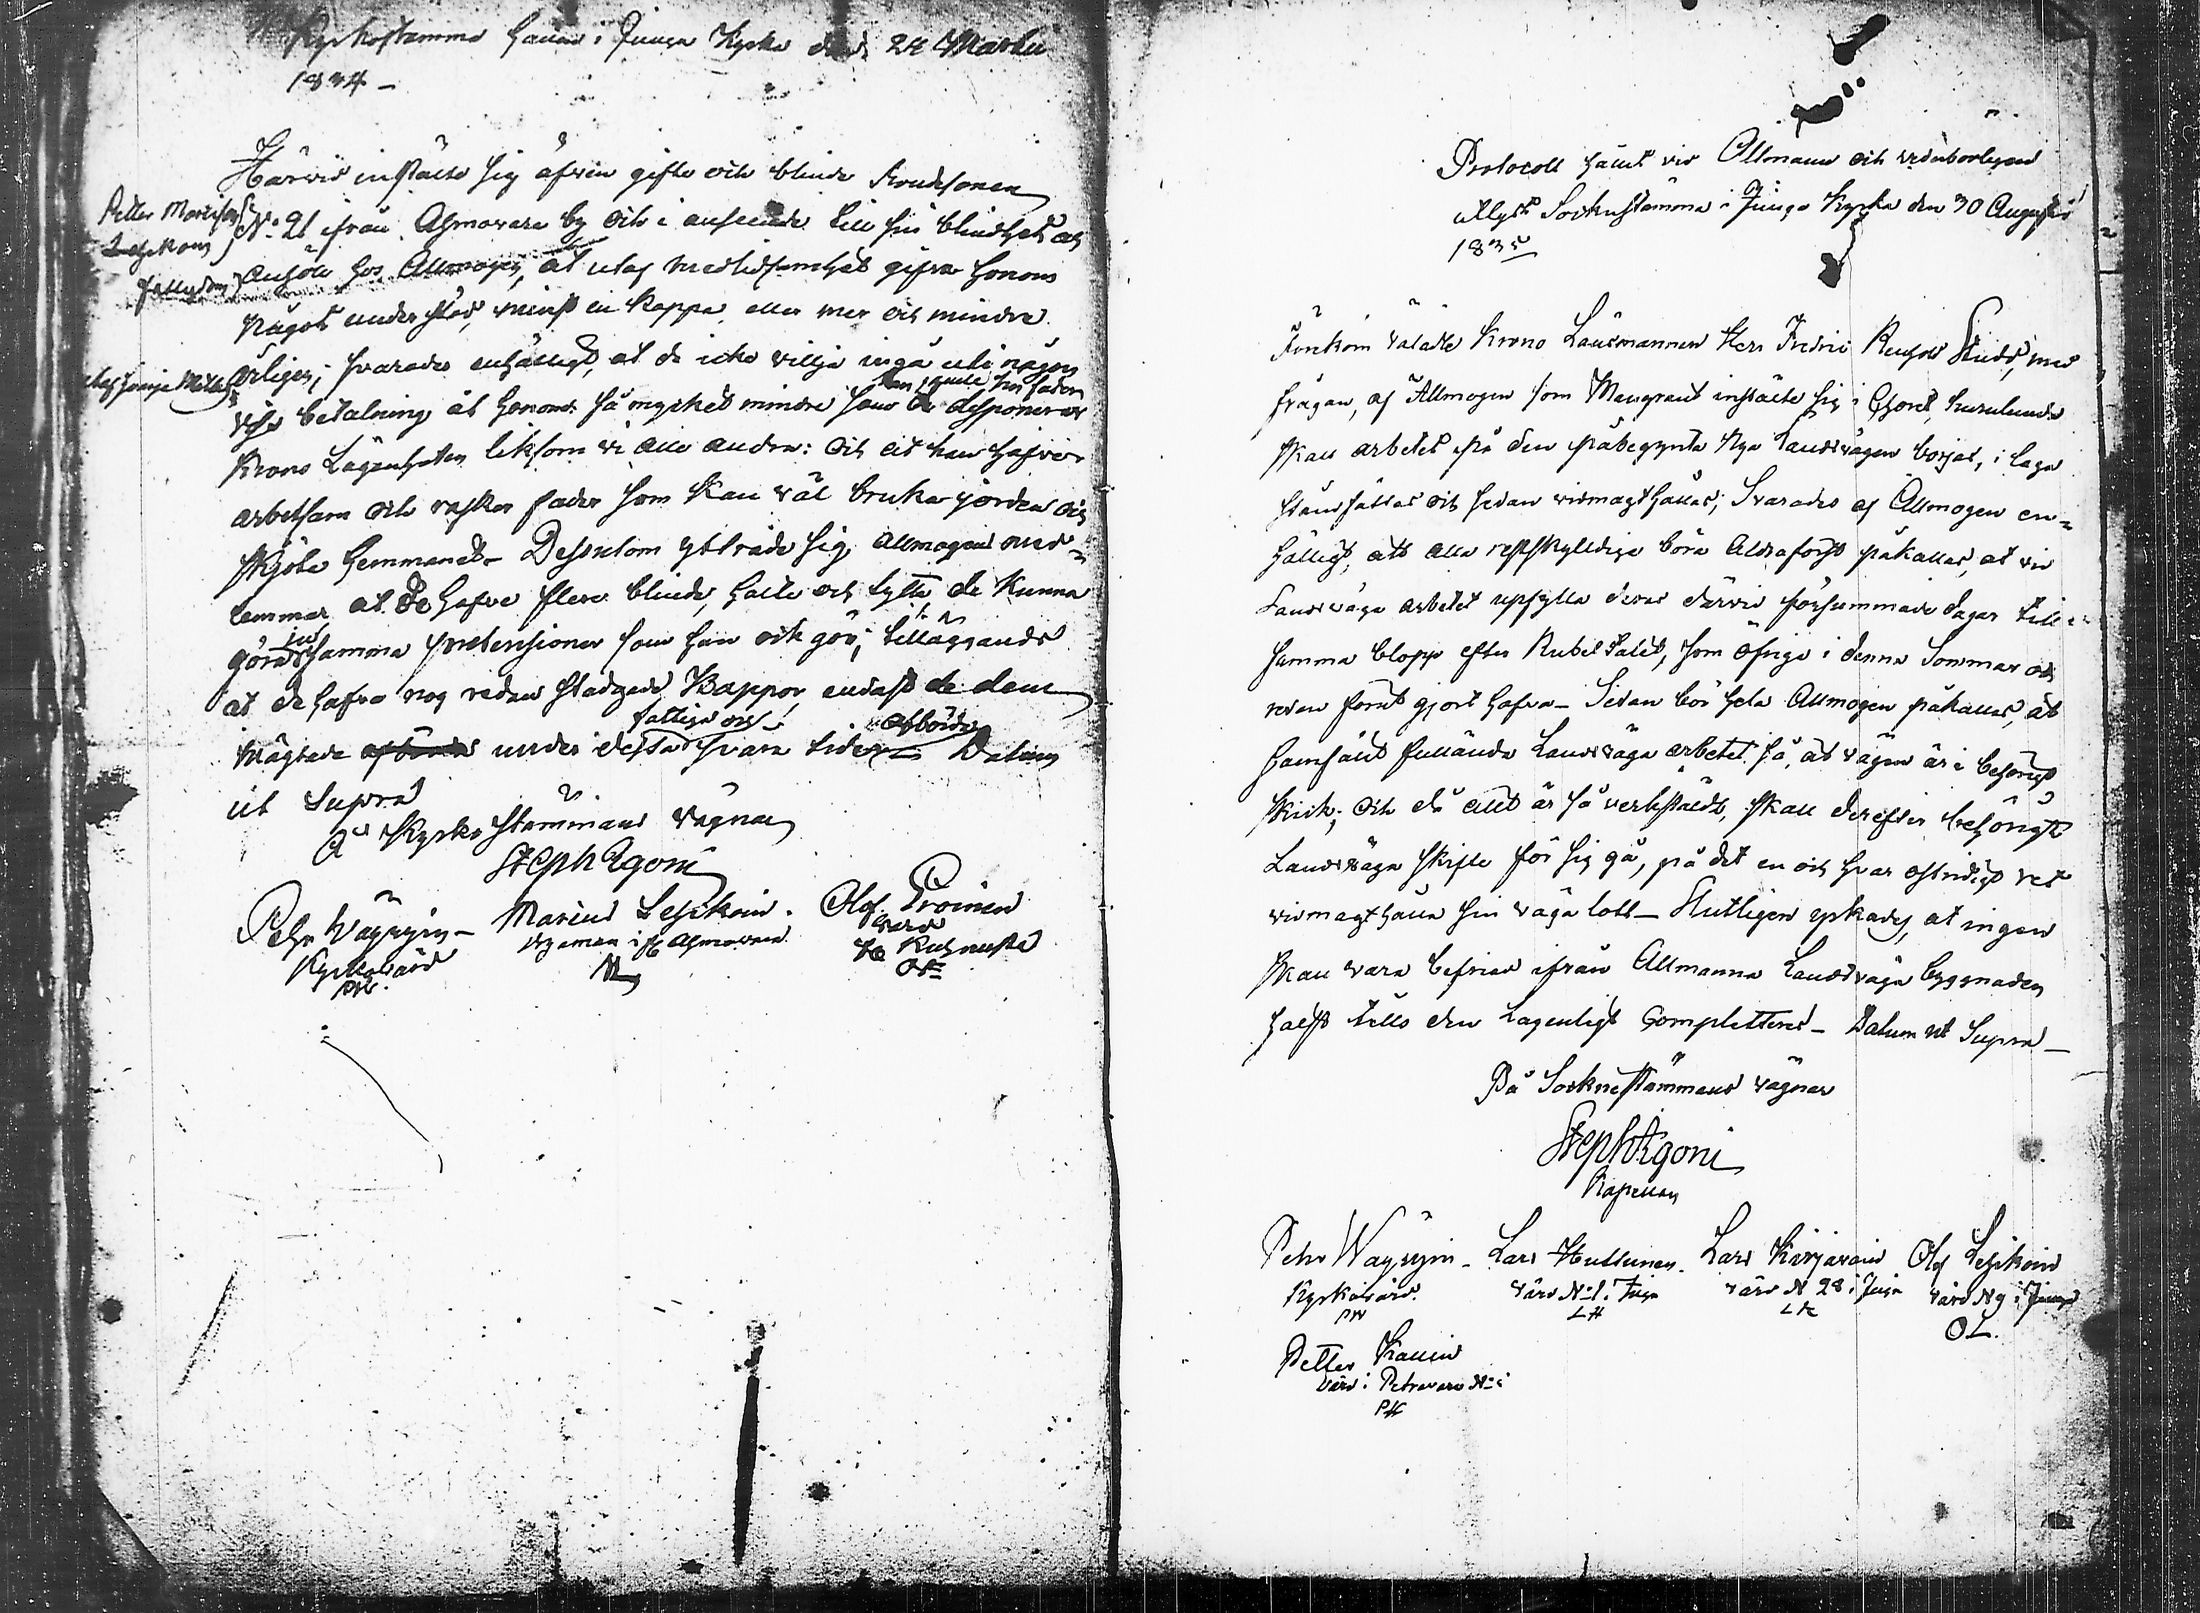 Kyrkostämma hållen i Juuga Kyrka den 24 Martii
1834 –
Härvid instälte sig äfven gifte och blinde bondesonen
Petter Mariisson
Lesikoin
N:o 21 ifrån Ahmovara by och i anseende till sin blindhet och
anhöll hos Allmogen, at utaf medlidsamhet gifva honom
något understöd, minst en kappa eller mer och mindre
årligen; svarades enhälligt, at de icke villja ingå uti någon
viss betalning åt honom så mycket mindre som de disponerar
Krono Lägenheten liksom vi alle andra: och at han hafver
arbetsam och rasker fader som kan väl bruka jorden och
sköta hemmanet – Dessutom yttrade sig Allmogens med-
lemmar at de hafve flere blinde, halte och lytte de kunna
göra samma pretensioner som han ock gör; tilläggande
at de hafva nog redan stadgade Kappor endast de dem
fattige och afbörda
mägtade under dessa svåra tider – Datum
ut Supra
På Kyrko Stämmans vägnar
Steph Agoni
Pehr Wäyrÿin – Marius Lesikoin. Olof Proinen
Kyrkovärd
PW.
Olof Lesikoin
Protocoll hållit vid Allmänn och vederbörligen
utlyst Sockenstämma i Juuga Kyrka den 30 Augusti
1835
Förekom välädle Krono Länsmannen Herr Fredric Reinhold Stude, med
frågan, af Allmogen som Mangrant instälte sig i Choret, hurulunda
skall arbetet på den påbegynta nya Landsvägen börjas, i laga
stånd sättas och sedan vidmagthållas; Svarades af Allmogen en-
hälligt, att alla restskyldige böra Aldraförst påkallas, at vid
Landsväga arbetet upfylla deras därvid försummade dagar till
samma belopp efter Rubel talet, som öfrige i denna Sommar och
redan förut gjort hafva – Sedan bör hela Allmogen påkallas, at
samfält fullända Landsväga arbetet så, at vägen är i behörigt
skick; och då allt är så verkstäldt, skall derefter behörigt
Landsväga skifte för sig gå, på det en och hvar ostridigt vet
vidmagthålla sin väga lott – Slutligen yrkades, at ingen
skall vara befriad ifrån Allmänna Landsväga byggnaden
hälst tills den Lagenligt Completteras – Datum ut Supra –
På Sockne Stämmans vägnar
Steph Agoni
Kapellan
Pehr Wäyrÿin – Lars Huttunen – Lars Kirjavain Olof Lesikoin
Kyrkovärd. värd N:o 1 i Juga värd N 28 i Juga värd N 9 i Juuga
PW LH LK OL.
Petter Kauin
värd i Petravara N:o
PK